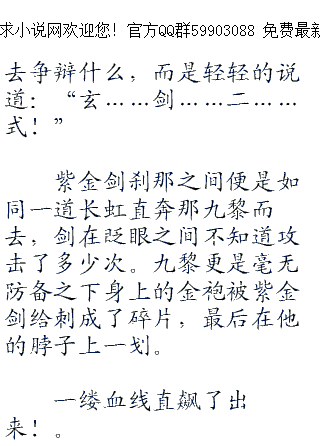 求小说网欢迎您！官方QQ群59903088 免费最新
去争辩什么，而是轻轻的说
道：“玄……剑……二……
式！”
紫金剑刹那之间便是如
同一道长虹直奔那九黎而
去，剑在眨眼之间不知道攻
击了多少次。九黎更是毫无
防备之下身上的金袍被紫金
剑给刺成了碎片，最后在他
的脖子上一划。
一缕血线直飙了出
来！。